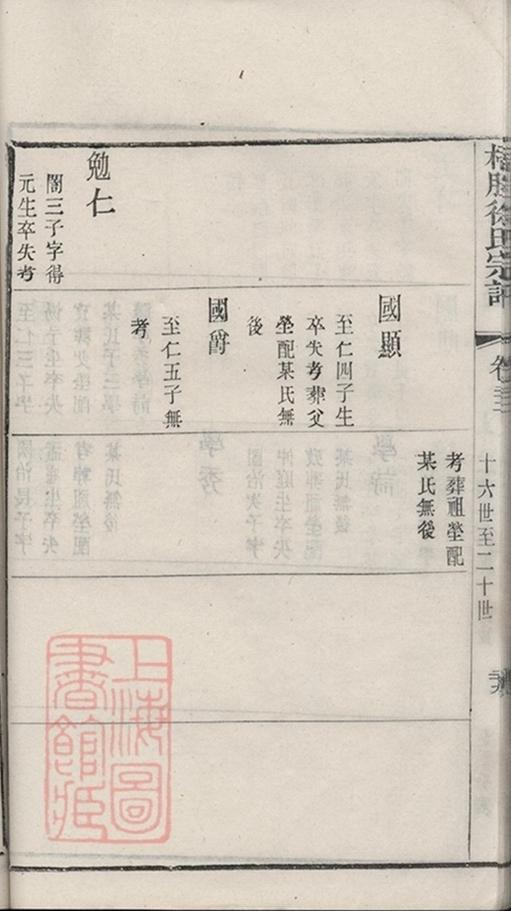 徐氏宗譜
卷
十六世至二十世
考葬祖塋配
某氏無後
國顯
至仁四子生
卒失考葬父
塋配某氏無
後
國爵
至仁五子無
考
勉仁
閣三子字得
元生卒失考
上海圖
書館藏